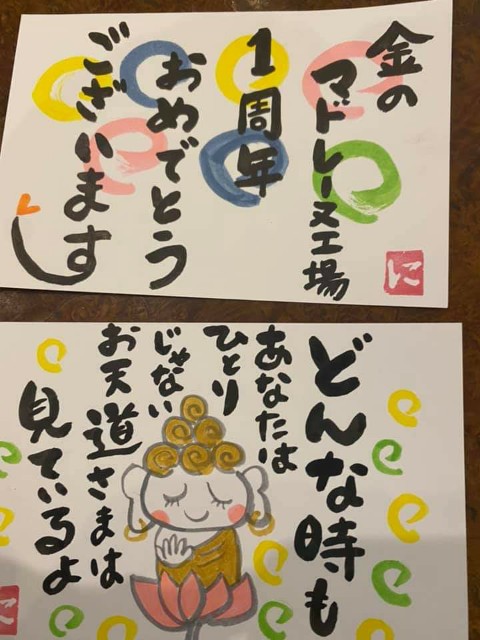 金の
マドレーヌ工場
1周年
おめでとう
ございます
に
どんな時も
あなたは
ひとり
じゃない
お天道さまは
見ているよ
に